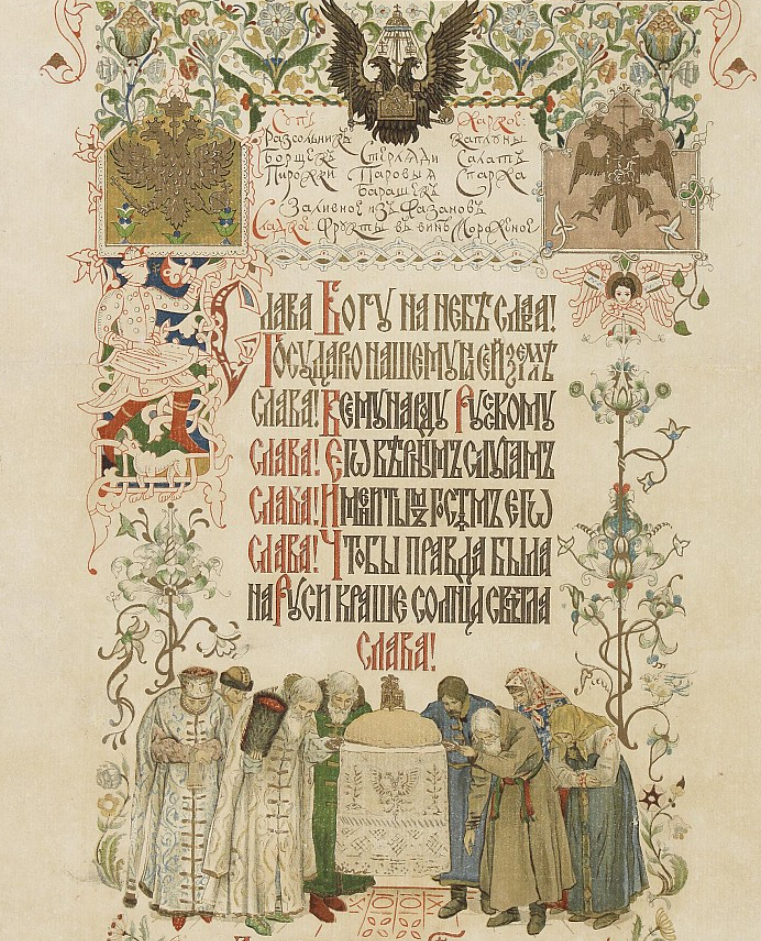 Супъ Жаркое:
Разсольникъ Каплуны
Борщекъ Стерляди Салатъ
Пирожки Паровыя Спаржа
Барашекъ
Заливное изъ Фазановъ
Сладкое: Фрукты въ винѣ Мороженое
Слава Богу на небѣ слава!
Государю нашему на сей землѣ
слава! Всему народу Рускому
слава! Егѡ вѣрнымъ слугамъ
слава! Именитымъ гостямъ егѡ
слава! Чтобы правда была
на Руси краше солнца свѣтла
слава!